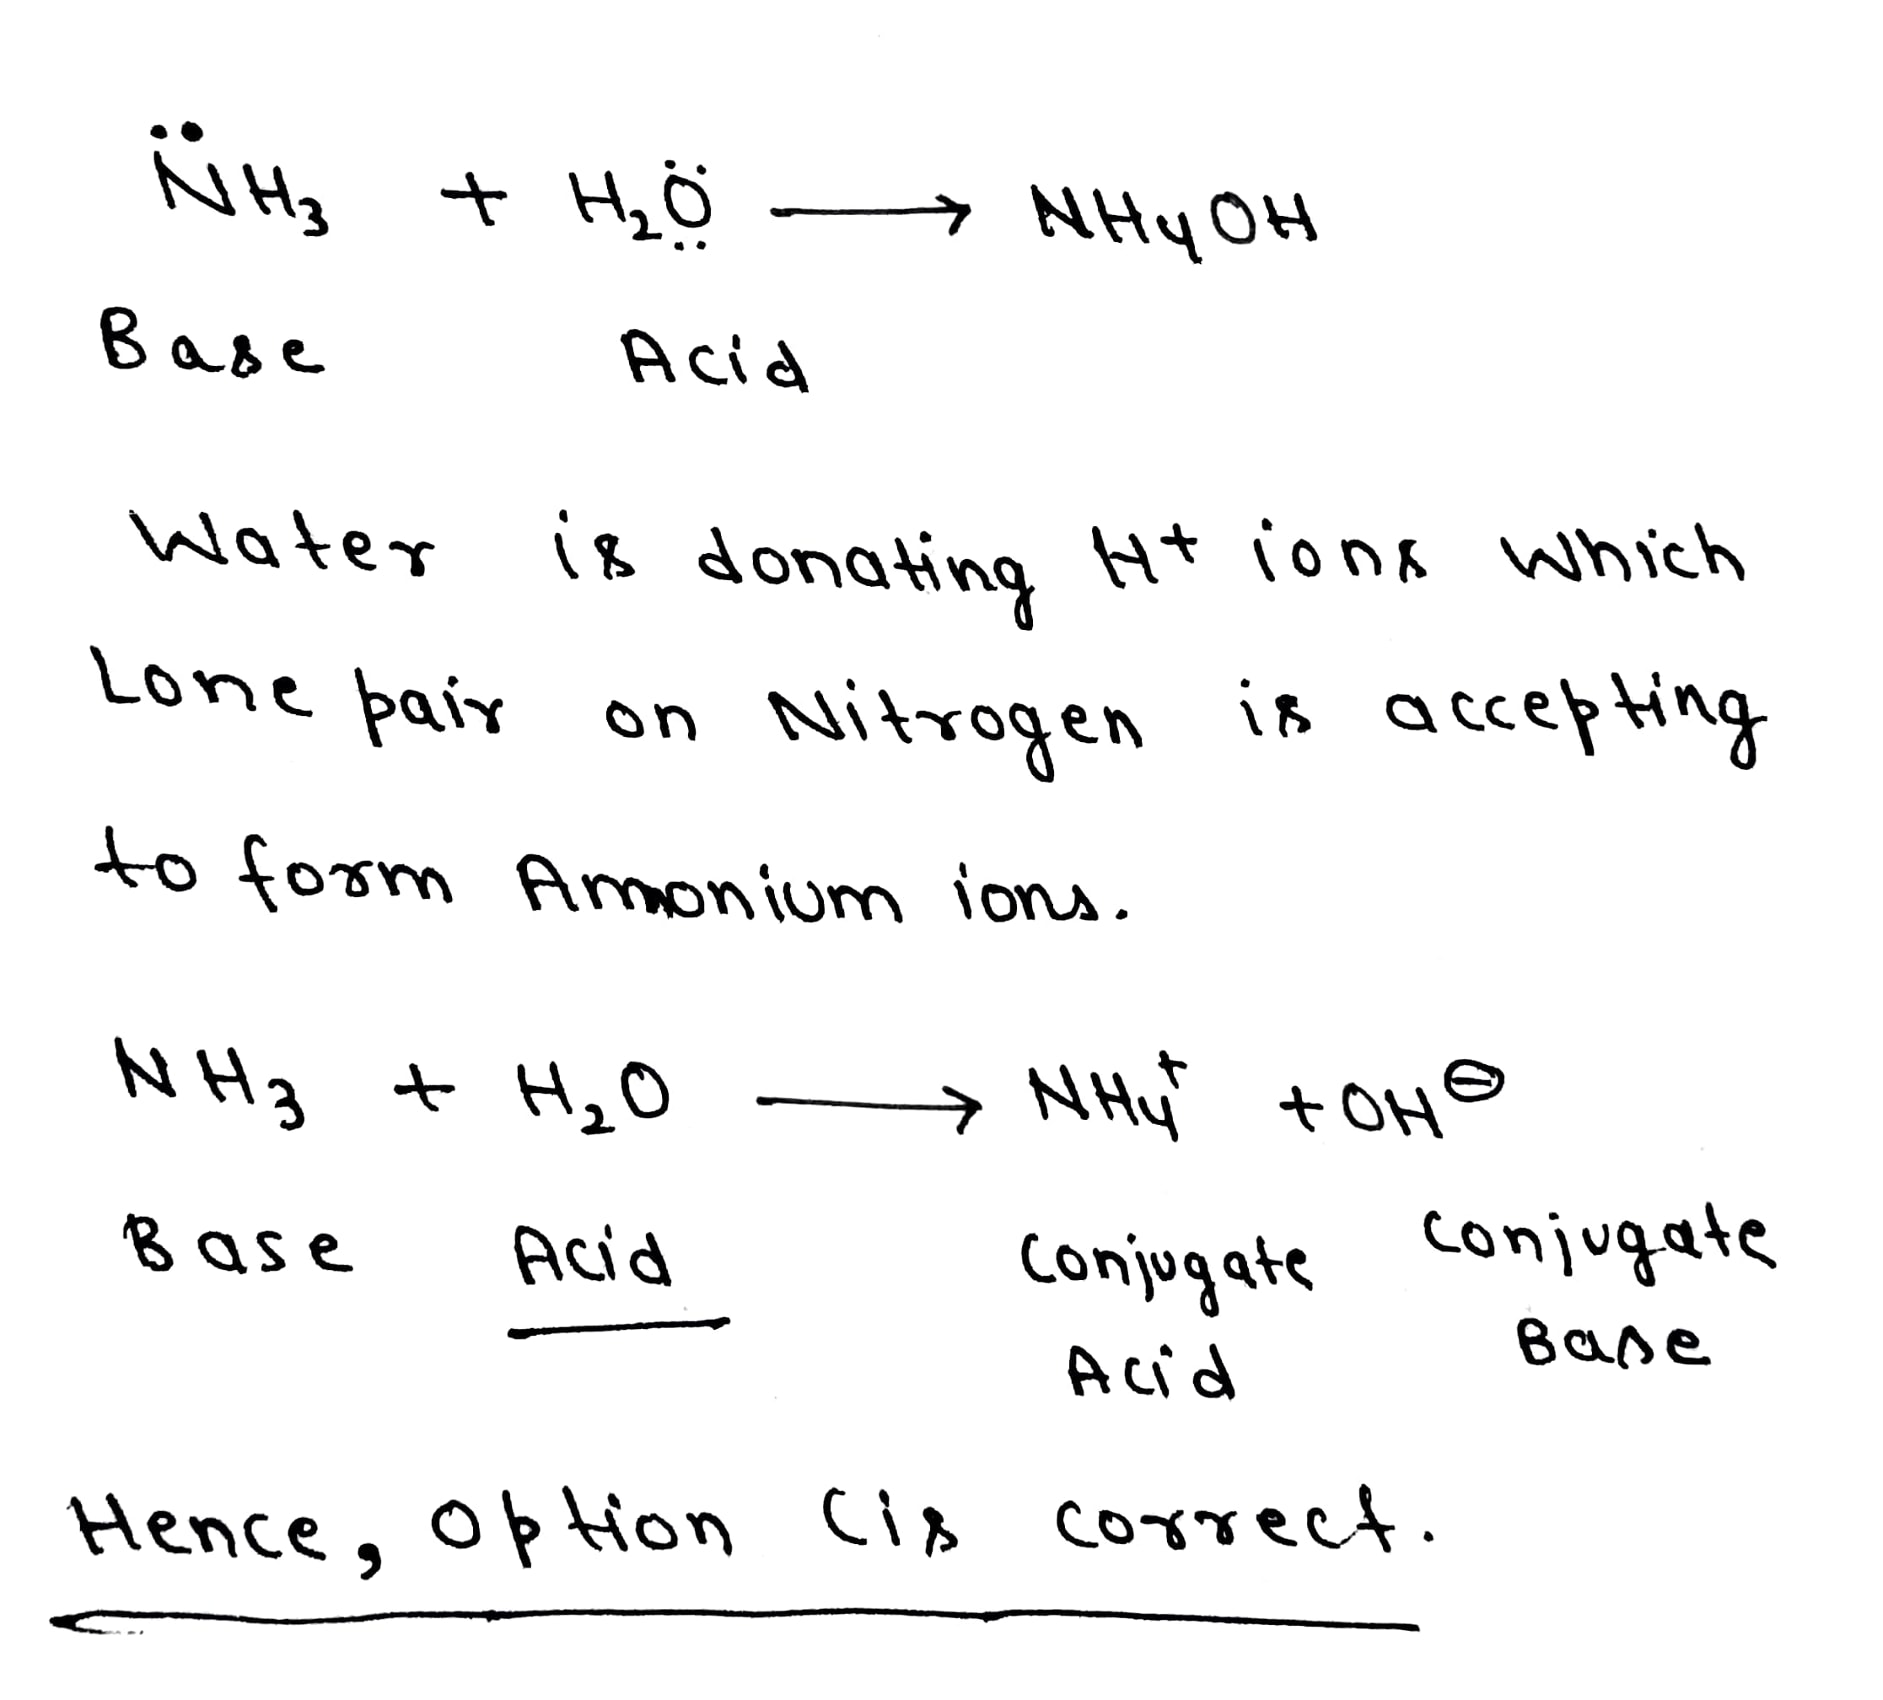 N̈H₃ + H₂Ö̤ ⟶ NH₄OH
Base Acid
Water is donating H⁺ ions which
Lone pair on Nitrogen is accepting
to form Ammonium ions.
NH₃ + H₂O ⟶ NH₄⁺ + OH⊖
Base Acid Conjugate Acid Conjugate Base
Hence, Option C is correct.